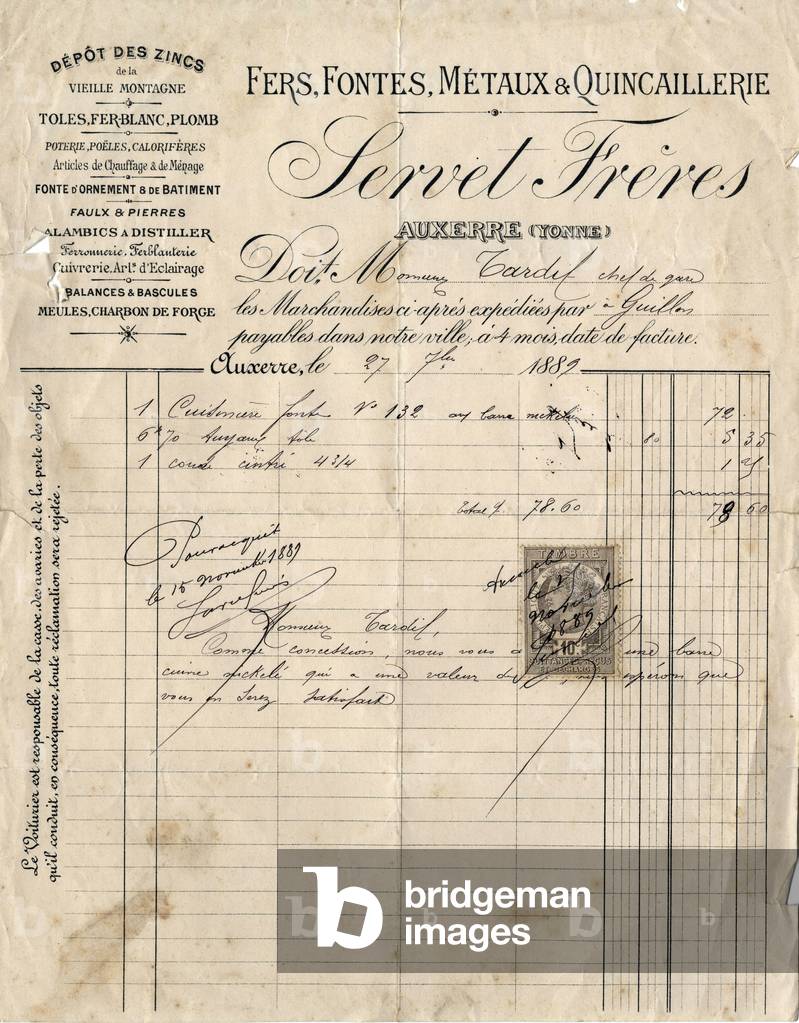 DÉPÔT DES ZINCS
de la
VIEILLE MONTAGNE
TOLES, FER-BLANC, PLOMB
POTERIE, POËLES, CALORIFÈRES
Articles de Chauffage & de Ménage
FONTE D'ORNEMENT & DE BATIMENT
FAULX & PIERRES
ALAMBICS A DISTILLER
Ferronnerie, Ferblanterie
Cuivrerie. Art. d'Eclairage
BALANCES & BASCULES
MEULES, CHARBON DE FORGE
FERS, FONTES, MÉTAUX & QUINCAILLERIE
Servet Frères
AUXERRE (YONNE)
Doit, Monsieur Tardif chef de gare
les Marchandises ci-après expédiées par à Guillon
payables dans notre ville, à 4 mois, date de facture.
Auxerre, le 27 7bre 1889
1 Cuisinière fonte No 132 72
6k 70 tuyaux tôle 80 5 35
1 coude cintré 4 3/4 1 25
total 78.60 78 60
Pour acquit
le 15 novembre 1889
Monsieur Tardif,
Comme concession, nous vous une barre
cuivre nickelé qui a une valeur de espérons que
vous en serez satisfait
TIMBRE
10
1889
Le Voiturier est responsable de la casse, des avaries et de la perte des objets
qu'il conduit, en conséquence, toute réclamation sera rejetée.
b bridgeman
images